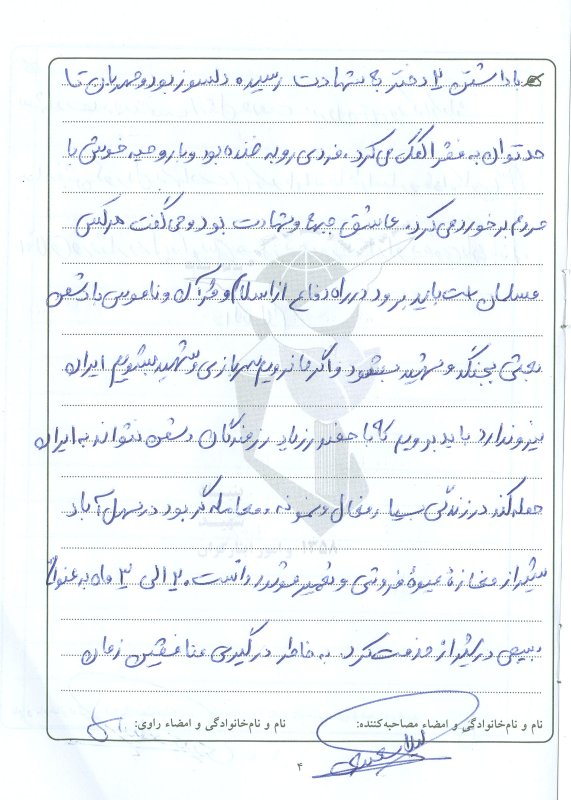 با داشتن ۳ دختر به شهادت رسید. دلسوز بود و مهربان تا
حد توان به فقرا کمک می کرد. فردی رو به خنده بود و با روحیه خوش با
مردم برخورد می کرد. عاشق جبهه و شهادت بود و می گفت هر کس
مسلمان است باید برود در راه دفاع از اسلام و قرآن و ناموس با دشمن
بعثی بجنگد و شهید بشود و اگر ما نرویم سربازی و شهید بشویم ایران
نیرو ندارد باید برویم که با حضور زیاد رزمندگان دشمن نتواند به ایران
حمله کند در زندگی بسیار فعال و نمونه و معامله گر بود در سهل آباد
شیراز مغازه میوه فروشی و تعمیر موتور داشت. ۲ الی ۳ ماه به عنوان
بسیجی در شیراز خدمت کرد. به خاطر درگیری منافقین زمان
نام و نام‌خانوادگی و امضاء مصاحبه‌کننده:
نام و نام‌خانوادگی و امضاء راوی:
۱۳۵۸
۴